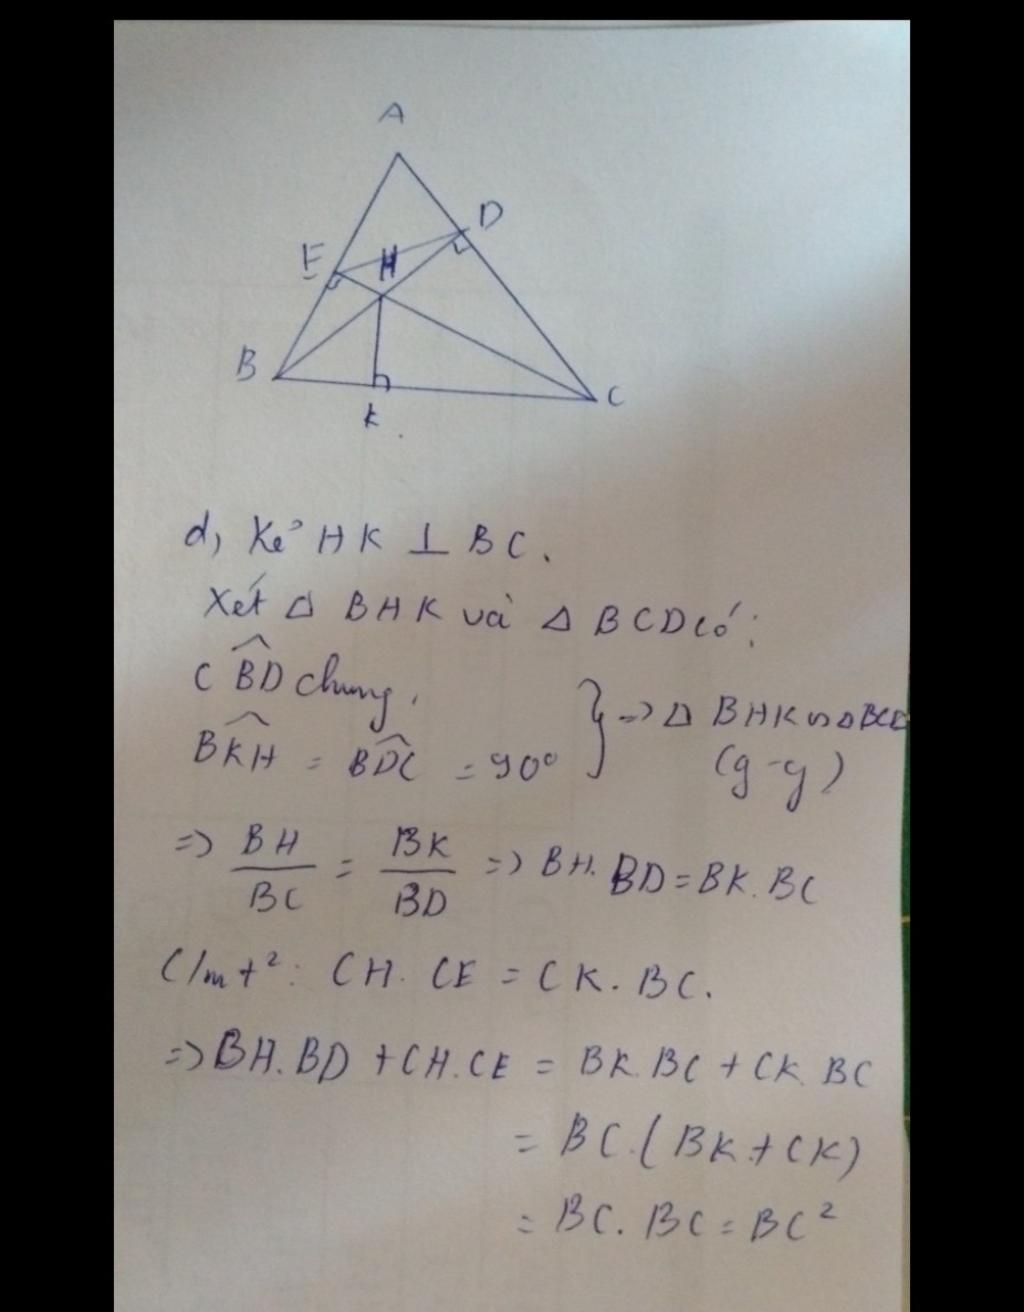 A
D
E
H
B
C
K
d, Kẻ HK ⊥ BC.
Xét Δ BHK và Δ BCD có:
CBD̂ chung,
BKĤ = BDĈ = 90° } => Δ BHK ∽ Δ BCD
(g-g)
=> BH/BC = BK/BD => BH. BD = BK. BC
C/m t²: CH. CE = CK. BC.
=> BH.BD + CH.CE = BK.BC + CK.BC
= BC.(BK + CK)
= BC. BC = BC²